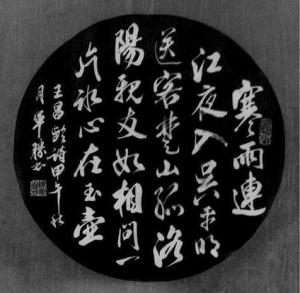 寒雨連
江夜入吳平明
送客楚山孤洛
陽親友如相問一
片冰心在玉壺
王昌齡詩甲午秋
月軍